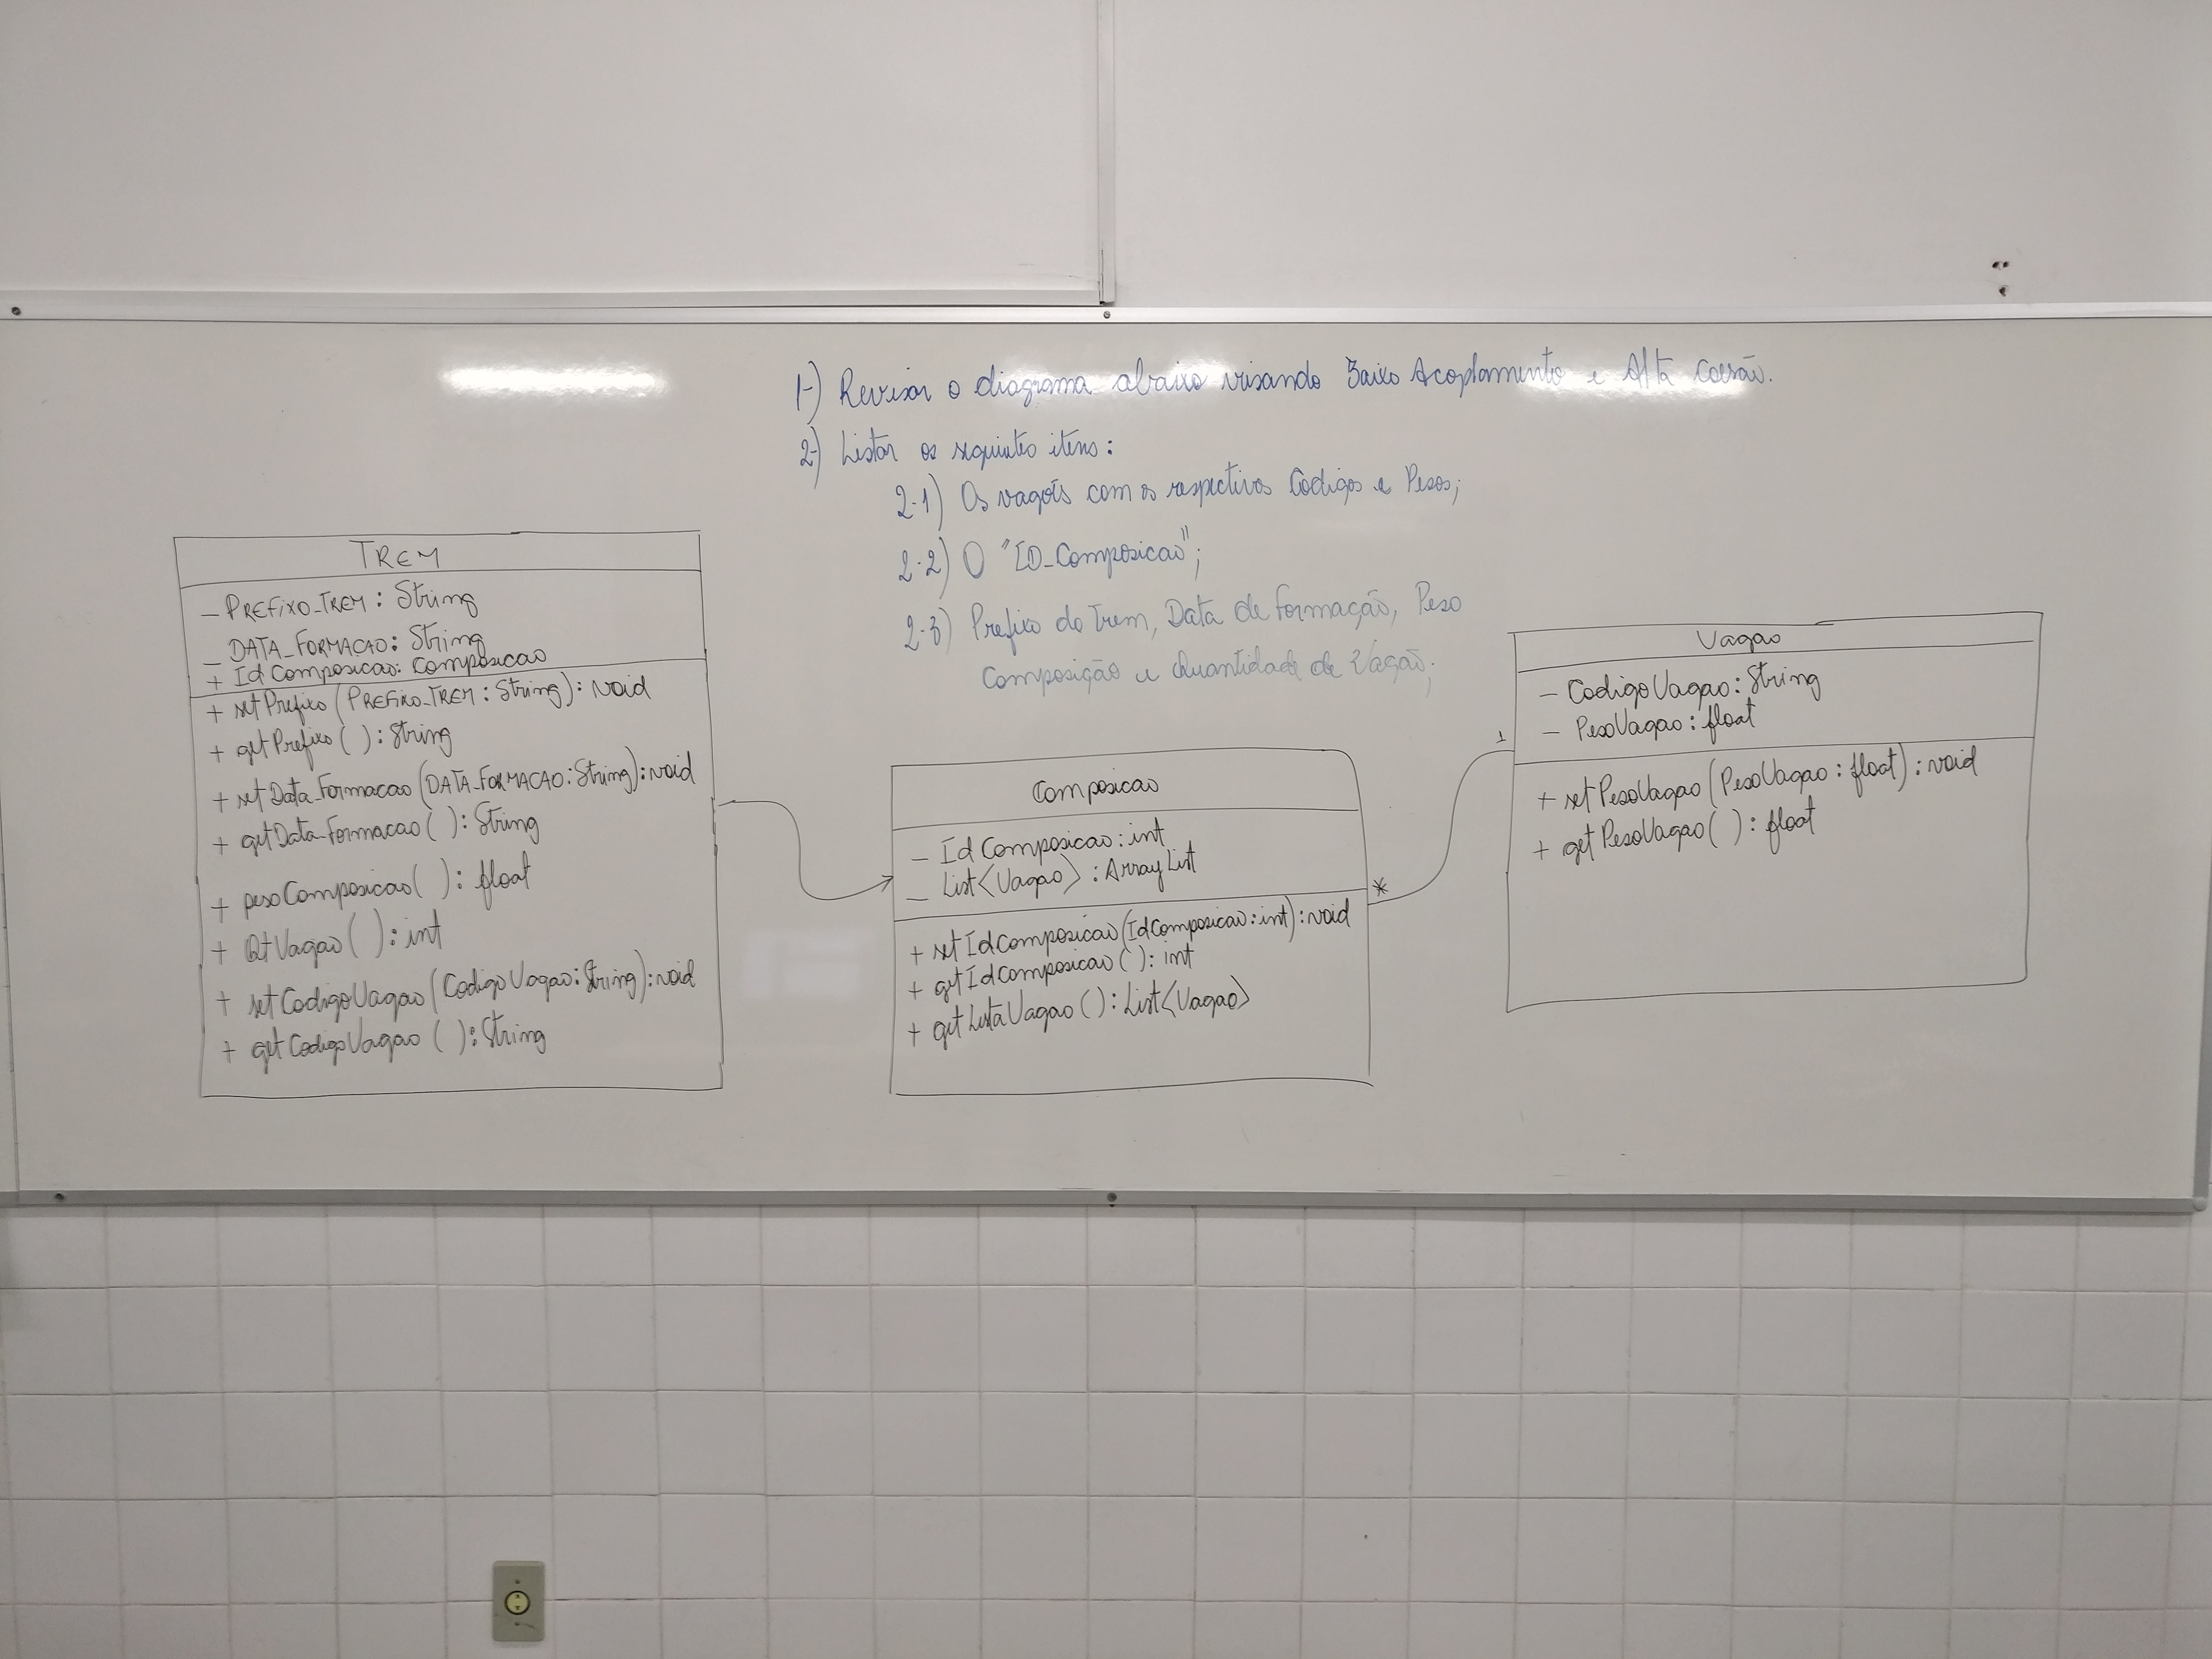 1-) Revisar o diagrama abaixo visando Baixo Acoplamento e Alta Coesão.
2-) Listar os seguintes itens:
2.1) Os vagões com os respectivos Codigos e Pesos;
2.2) O "ID_Composicao";
2.3) Prefixo do Trem, Data de Formação, Peso
Composição e Quantidade de Vagão;
TREM
- PREFIXO_TREM: String
- DATA_FORMACAO: String
+ IdComposicao: Composicao
+ setPrefixo(PREFIXO_TREM: String): void
+ getPrefixo( ): String
+ setData_Formacao(DATA_FORMACAO: String): void
+ getData_Formacao( ): String
+ pesoComposicao( ): float
+ QtVagao( ): int
+ setCodigoVagao(CodigoVagao: String): void
+ getCodigoVagao ( ): String
Composicao
- IdComposicao: int
- List<Vagao> : ArrayList
+ setIdComposicao(IdComposicao: int): void
+ getIdComposicao( ): int
+ getListaVagao ( ): List<Vagao>
*
1
Vagao
- CodigoVagao: String
- PesoVagao: float
+ setPesoVagao(PesoVagao: float): void
+ getPesoVagao( ): float